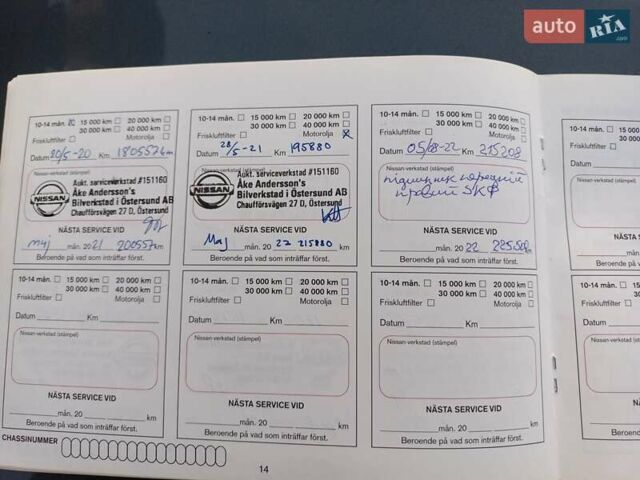 auto RIA
.com
10-14 mån. ☒ 15 000 km ☐ 20 000 km ☐
30 000 km ☐ 40 000 km ☐
Friskluftfilter ☐ Motorolja ☐
Datum 20/5-20 Km
Nissan-verkstad (stämpel)
Aukt. serviceverkstad #151160
Åke Andersson's
Bilverkstad i Östersund AB
Chaufförsvägen 27 D, Östersund
NISSAN
NÄSTA SERVICE VID
maj mån. 2021 200557 km
Beroende på vad som inträffar först.
10-14 mån. ☐ 15 000 km ☐ 20 000 km ☐
30 000 km ☐ 40 000 km ☐
Friskluftfilter ☐ Motorolja ☒
Datum 28/5-21 Km 195880
Aukt. serviceverkstad #151160
Åke Andersson's
Bilverkstad i Östersund AB
Chaufförsvägen 27 D, Östersund
NISSAN
NÄSTA SERVICE VID
Maj mån. 2022 215880 km
Beroende på vad som inträffar först.
10-14 mån. ☐ 15 000 km ☐ 20 000 km ☐
30 000 km ☐ 40 000 km ☐
Friskluftfilter ☐ Motorolja ☐
Datum 05/08-22 Km 215208
Nissan-verkstad (stämpel)
підшипник передній
правий SKF
NÄSTA SERVICE VID
mån. 2022 km
Beroende på vad som inträffar först.
10-14 mån. ☐ 15 000 km ☐ 20 000 km ☐
30 000 km ☐ 40 000 km ☐
Friskluftfilter ☐ Motorolja ☐
Datum Km
Nissan-verkstad (stämpel)
NÄSTA SERVICE VID
mån. 20 km
Beroende på vad som inträffar först.
10-14 mån. ☐ 15 000 km ☐ 20 000 km ☐
30 000 km ☐ 40 000 km ☐
Friskluftfilter ☐ Motorolja ☐
Datum Km
Nissan-verkstad (stämpel)
NÄSTA SERVICE VID
mån. 20 km
Beroende på vad som inträffar först.
10-14 mån. ☐ 15 000 km ☐ 20 000 km ☐
30 000 km ☐ 40 000 km ☐
Friskluftfilter ☐ Motorolja ☐
Datum Km
Nissan-verkstad (stämpel)
NÄSTA SERVICE VID
mån. 20 km
Beroende på vad som inträffar först.
CHASSINUMMER
14
10-14 mån.
Friskluftfilter
Datum
Nissan-verkstad
Beroende
10-14 mån.
Friskluftfilter
Datum
Nissan-verkstad
Beroende